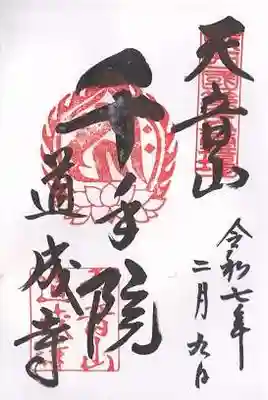 天音山
千手院
道成寺
令和七年
二月九日